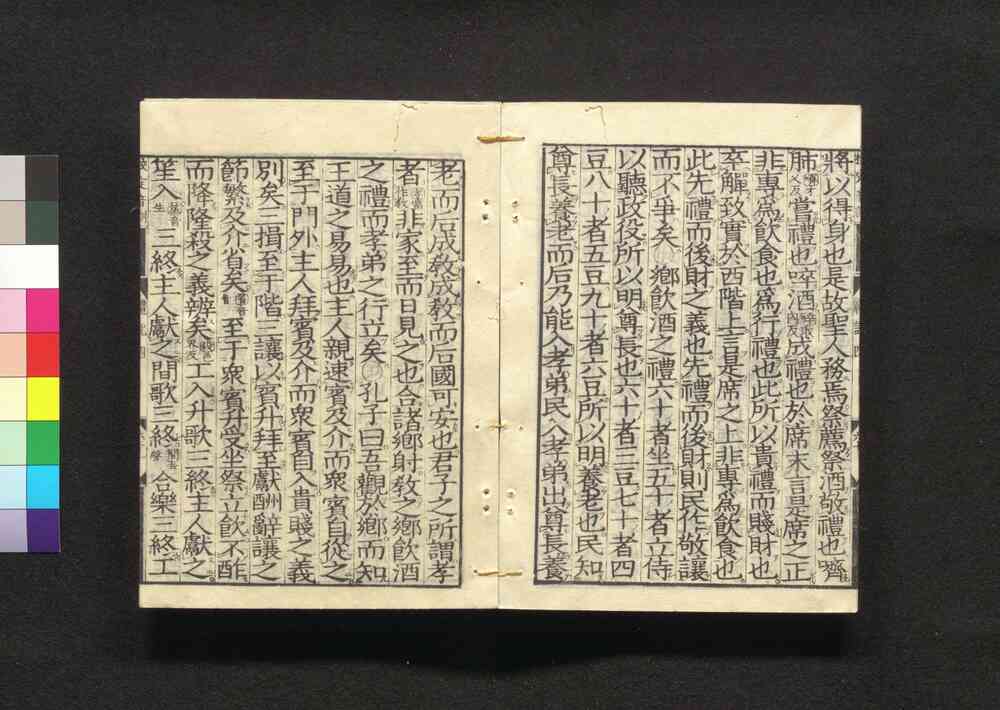 將以得身也是故聖人務焉祭薦祭酒敬禮也嚌
肺嘗禮也啐酒成禮也於席末言是席之正
非專為飲食也為行禮也此所以貴禮而賤財也
卒觶致實於西階上言是席之上非專為飲食也
此先禮而後財之義也先禮而後財則民作敬讓
而不爭矣○鄉飲酒之禮六十者坐五十者立侍
以聽政役所以明尊長也六十者三豆七十者四
豆八十者五豆九十者六豆所以明養老也民知
尊長養老而后乃能入孝弟民入孝弟出尊長養
老而后成敎成敎而后國可安也君子之所謂孝
者非家至而日見之也合諸鄉射敎之鄉飲酒
之禮而孝弟之行立矣○孔子曰吾觀於鄉而知
王道之易易也主人親速賓及介而衆賓自從之
至于門外主人拜賓及介而衆賓自入貴賤之義
別矣三揖至于階三讓以賓升拜至獻酬辭讓之
節繁及介省矣至于衆賓升受坐祭立飲不酢
而降隆殺之義辨矣工入升歌三終主人獻之
笙入三終主人獻之間歌三終合樂三終工